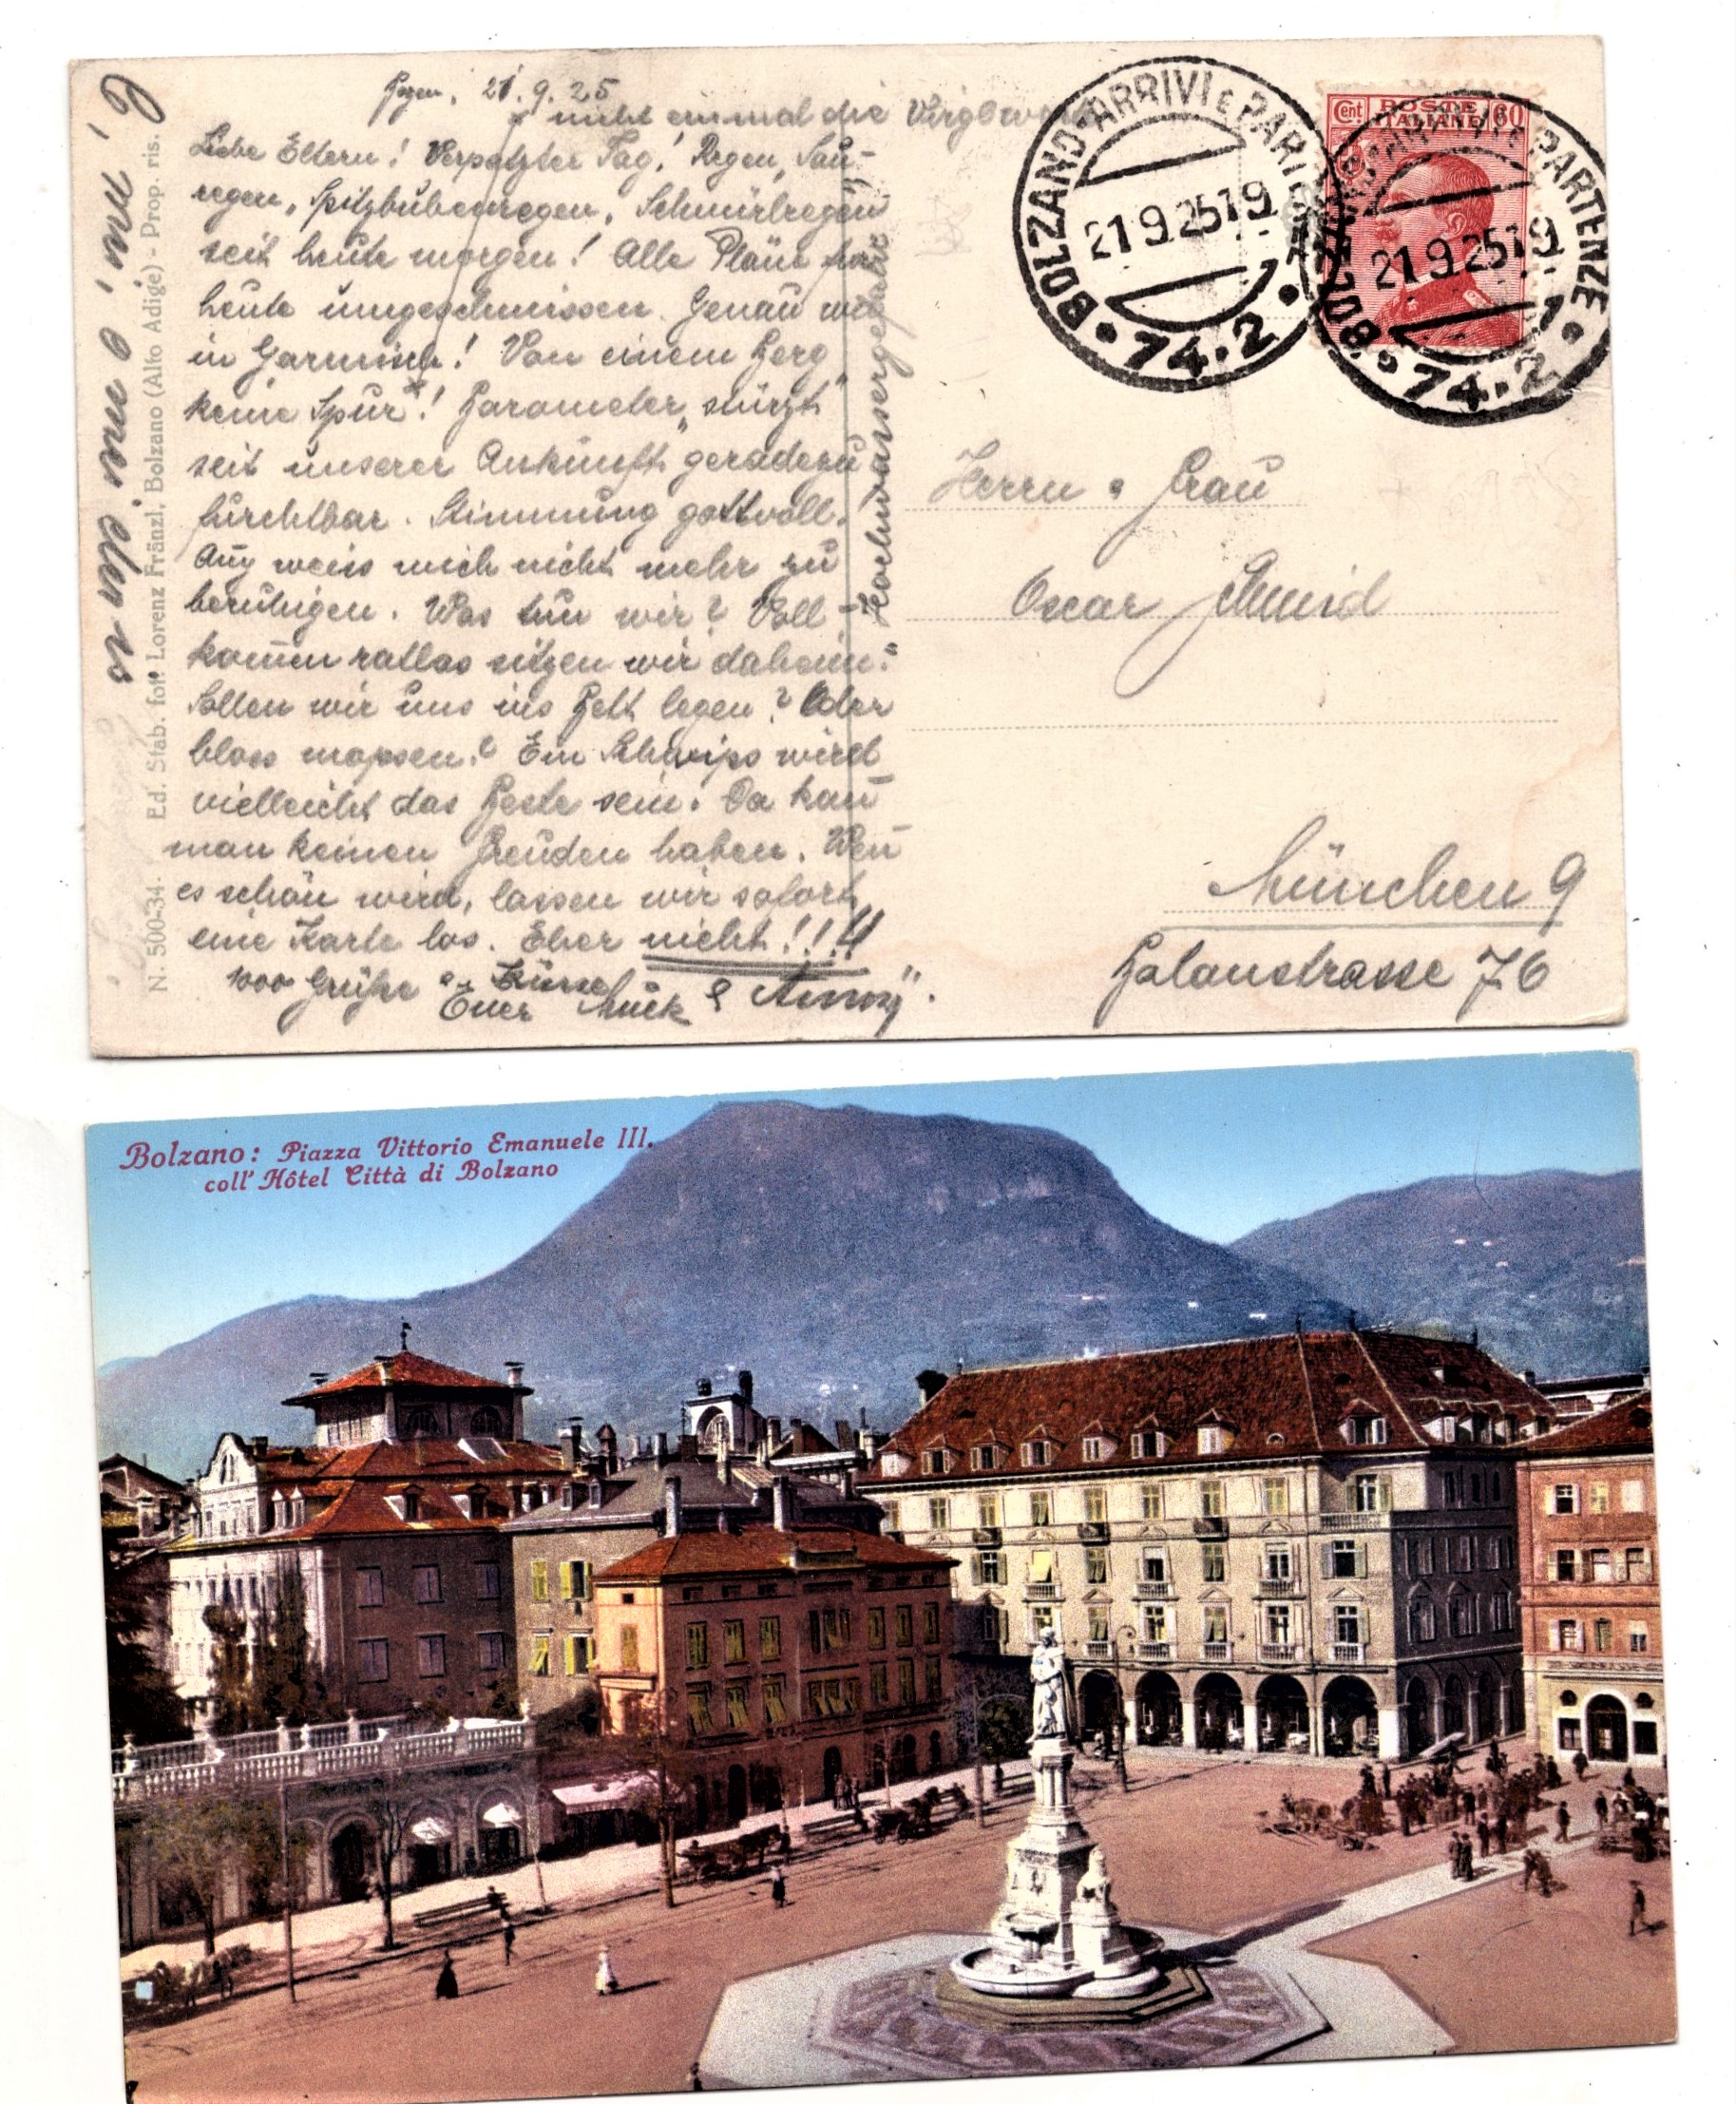 Bozen, 21.9.25
x nicht einmal die
Liebe Eltern! Verpatzter Tag! Regen, Sau-
regen, Spitzbubenregen, Schnürlregen
seit heute morgen! Alle Pläne für
heute umgeschmissen. Genau wie
in Garmisch! Von einem Berg
keine Spur x! Barometer „stürzt
seit unserer Ankunft" geradezu
furchtbar. Stimmung gottvoll.
weiss mich nicht mehr zu
beruhigen. Was tun wir? Voll-
kom̄en ratlos sitzen wir daheim.
Sollen wir uns ins Bett legen? Oder
bloss mopsen? Ein Schwips wird
vielleicht das Beste sein. Da kan̄
man keinen Freuden haben. Wen̄
es schön wird, lassen wir sofort
eine Karte los. Eher nicht!!!!
1000 Grüße & Küsse
Euer Muck &
Hochwassergefahr
N. 500-34. Ed. Stab. fot. Lorenz Fränzl, Bolzano (Alto Adige) - Prop. ris.
BOLZANO-ARRIVI E PARTENZE
21 9 25 19
74-2
Cent. POSTE ITALIANE 60
BOLZANO-ARRIVI E PARTENZE
21 9 25 19
74-2
Herrn & Frau
Oscar Schmid
München 9
Balanstrasse 76
Bolzano: Piazza Vittorio Emanuele III.
coll' Hôtel Città di Bolzano